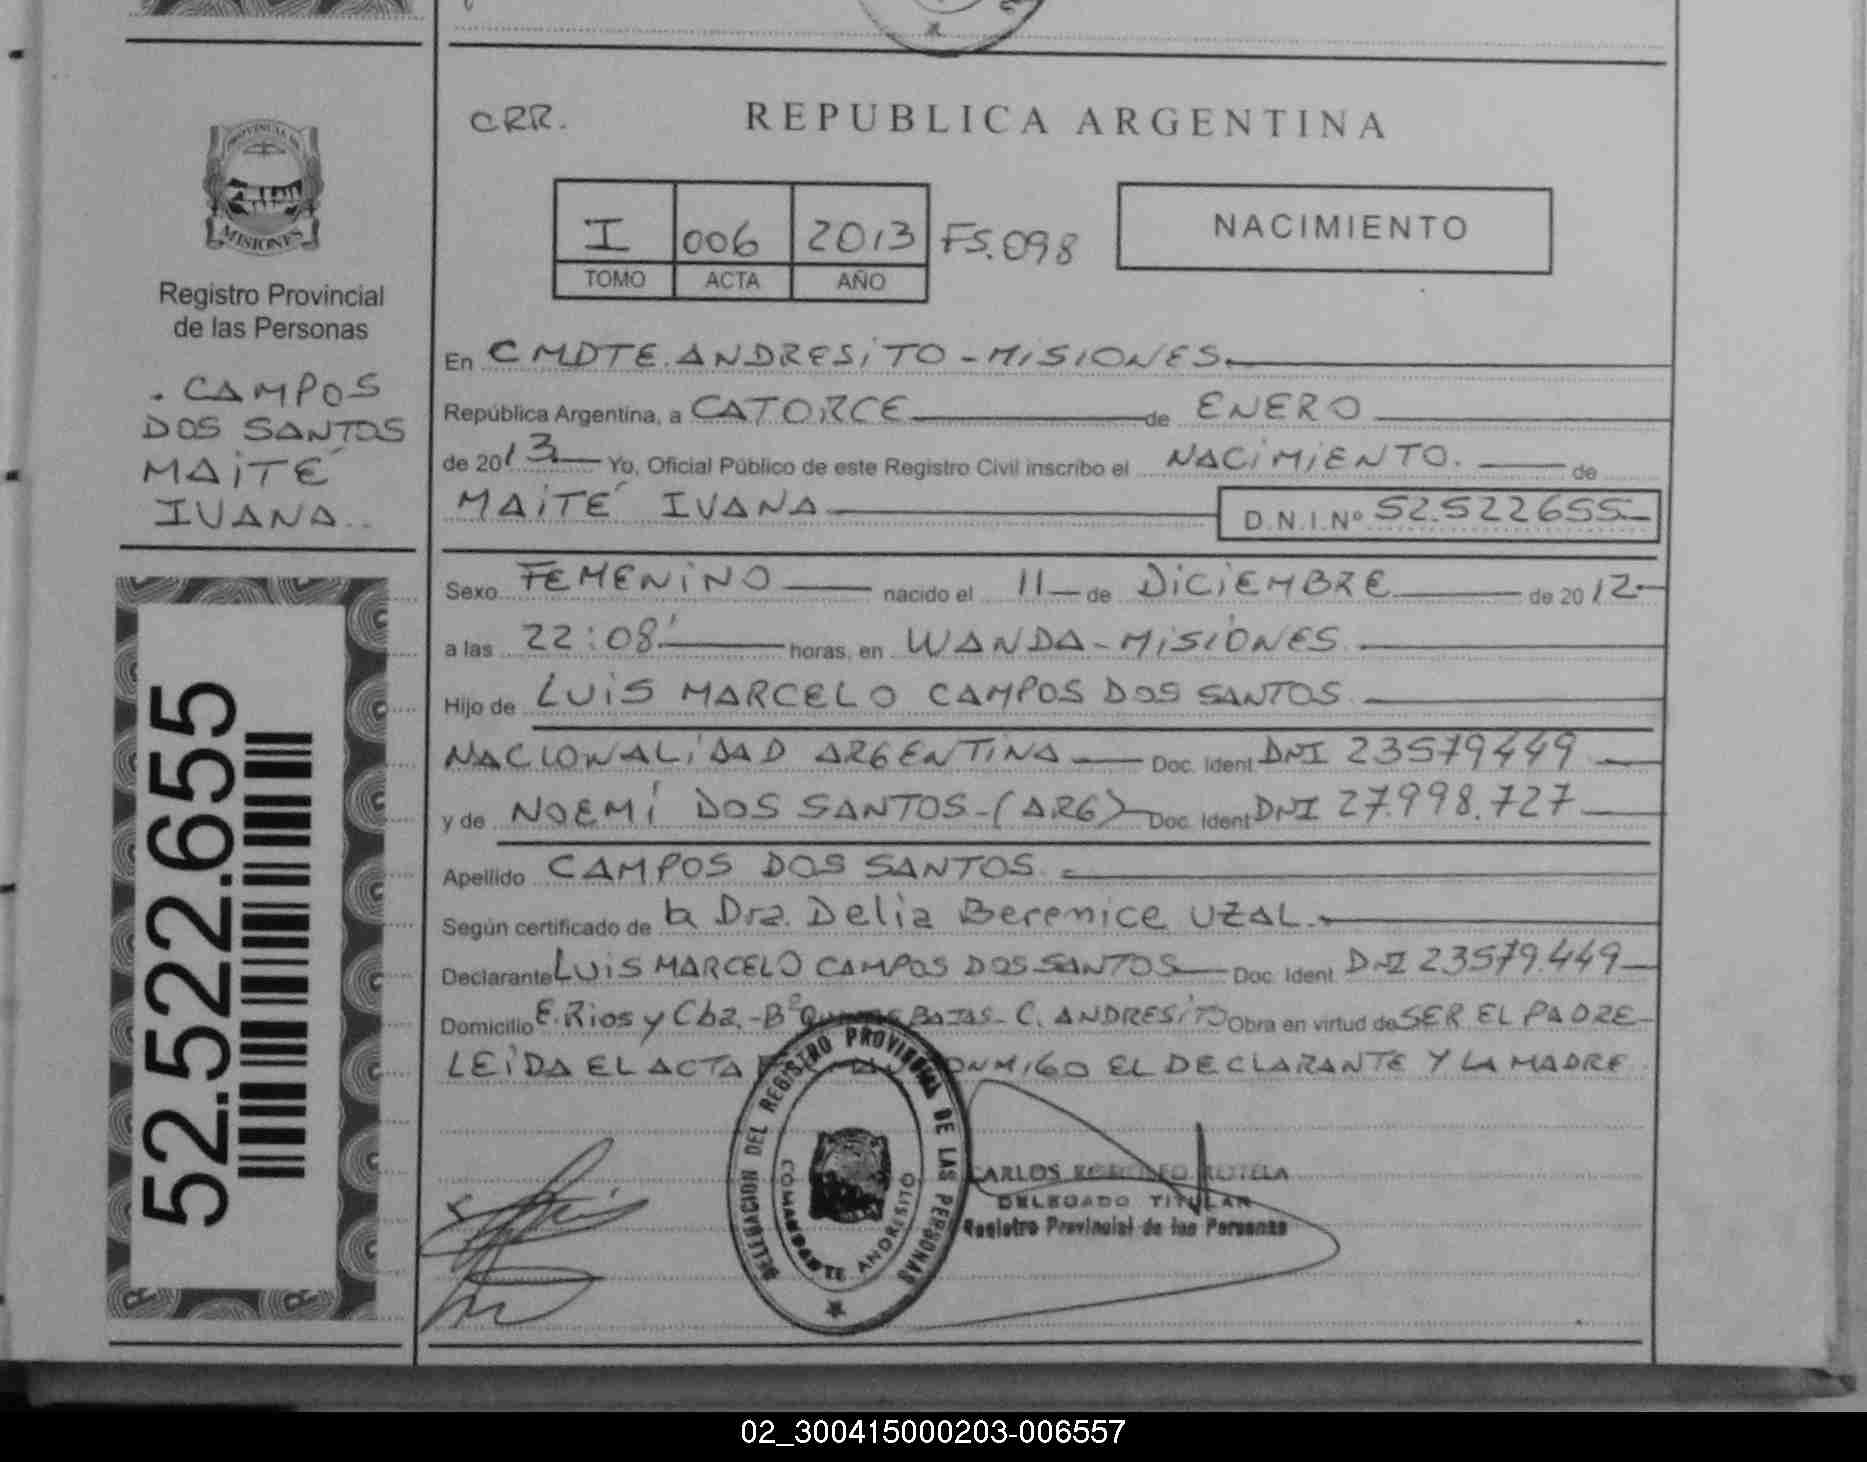 CRR.
REPUBLICA ARGENTINA
MISIONES
I 006 2013 FS. 098
TOMO ACTA AÑO
NACIMIENTO
Registro Provincial
de las Personas
. CAMPOS
DOS SANTOS
MAITÉ
IVANA
En CMDTE. ANDRESITO - MISIONES
República Argentina, a CATORCE de ENERO
de 2013 Yo, Oficial Público de este Registro Civil inscribo el NACIMIENTO. de
MAITÉ IVANA D.N.I.Nº 52.522655
Sexo FEMENINO nacido el 11 de DICIEMBRE de 2012
a las 22:08' horas, en WANDA - MISIONES
Hijo de LUIS MARCELO CAMPOS DOS SANTOS
NACIONALIDAD ARGENTINA Doc. Ident DNI 23579449
y de NOEMÍ DOS SANTOS - (ARG) Doc. Ident DNI 27.998.727
Apellido CAMPOS DOS SANTOS
Según certificado de la Dra. Delia Berenice UZAL.
Declarante LUIS MARCELO CAMPOS DOS SANTOS Doc. Ident. DNI 23579.449
Domicilio E. Rios y Cba. - Bº BAJAS - C. ANDRESITO Obra en virtud de SER EL PADRE
LEIDA EL ACTA CONMIGO EL DECLARANTE Y LA MADRE
52.522.655
DELEGACION DEL REGISTRO PROVINCIAL DE LAS PERSONAS
COMANDANTE ANDRESITO
CARLOS ROTELA
DELEGADO TITULAR
Registro Provincial de las Personas
02_300415000203-006557